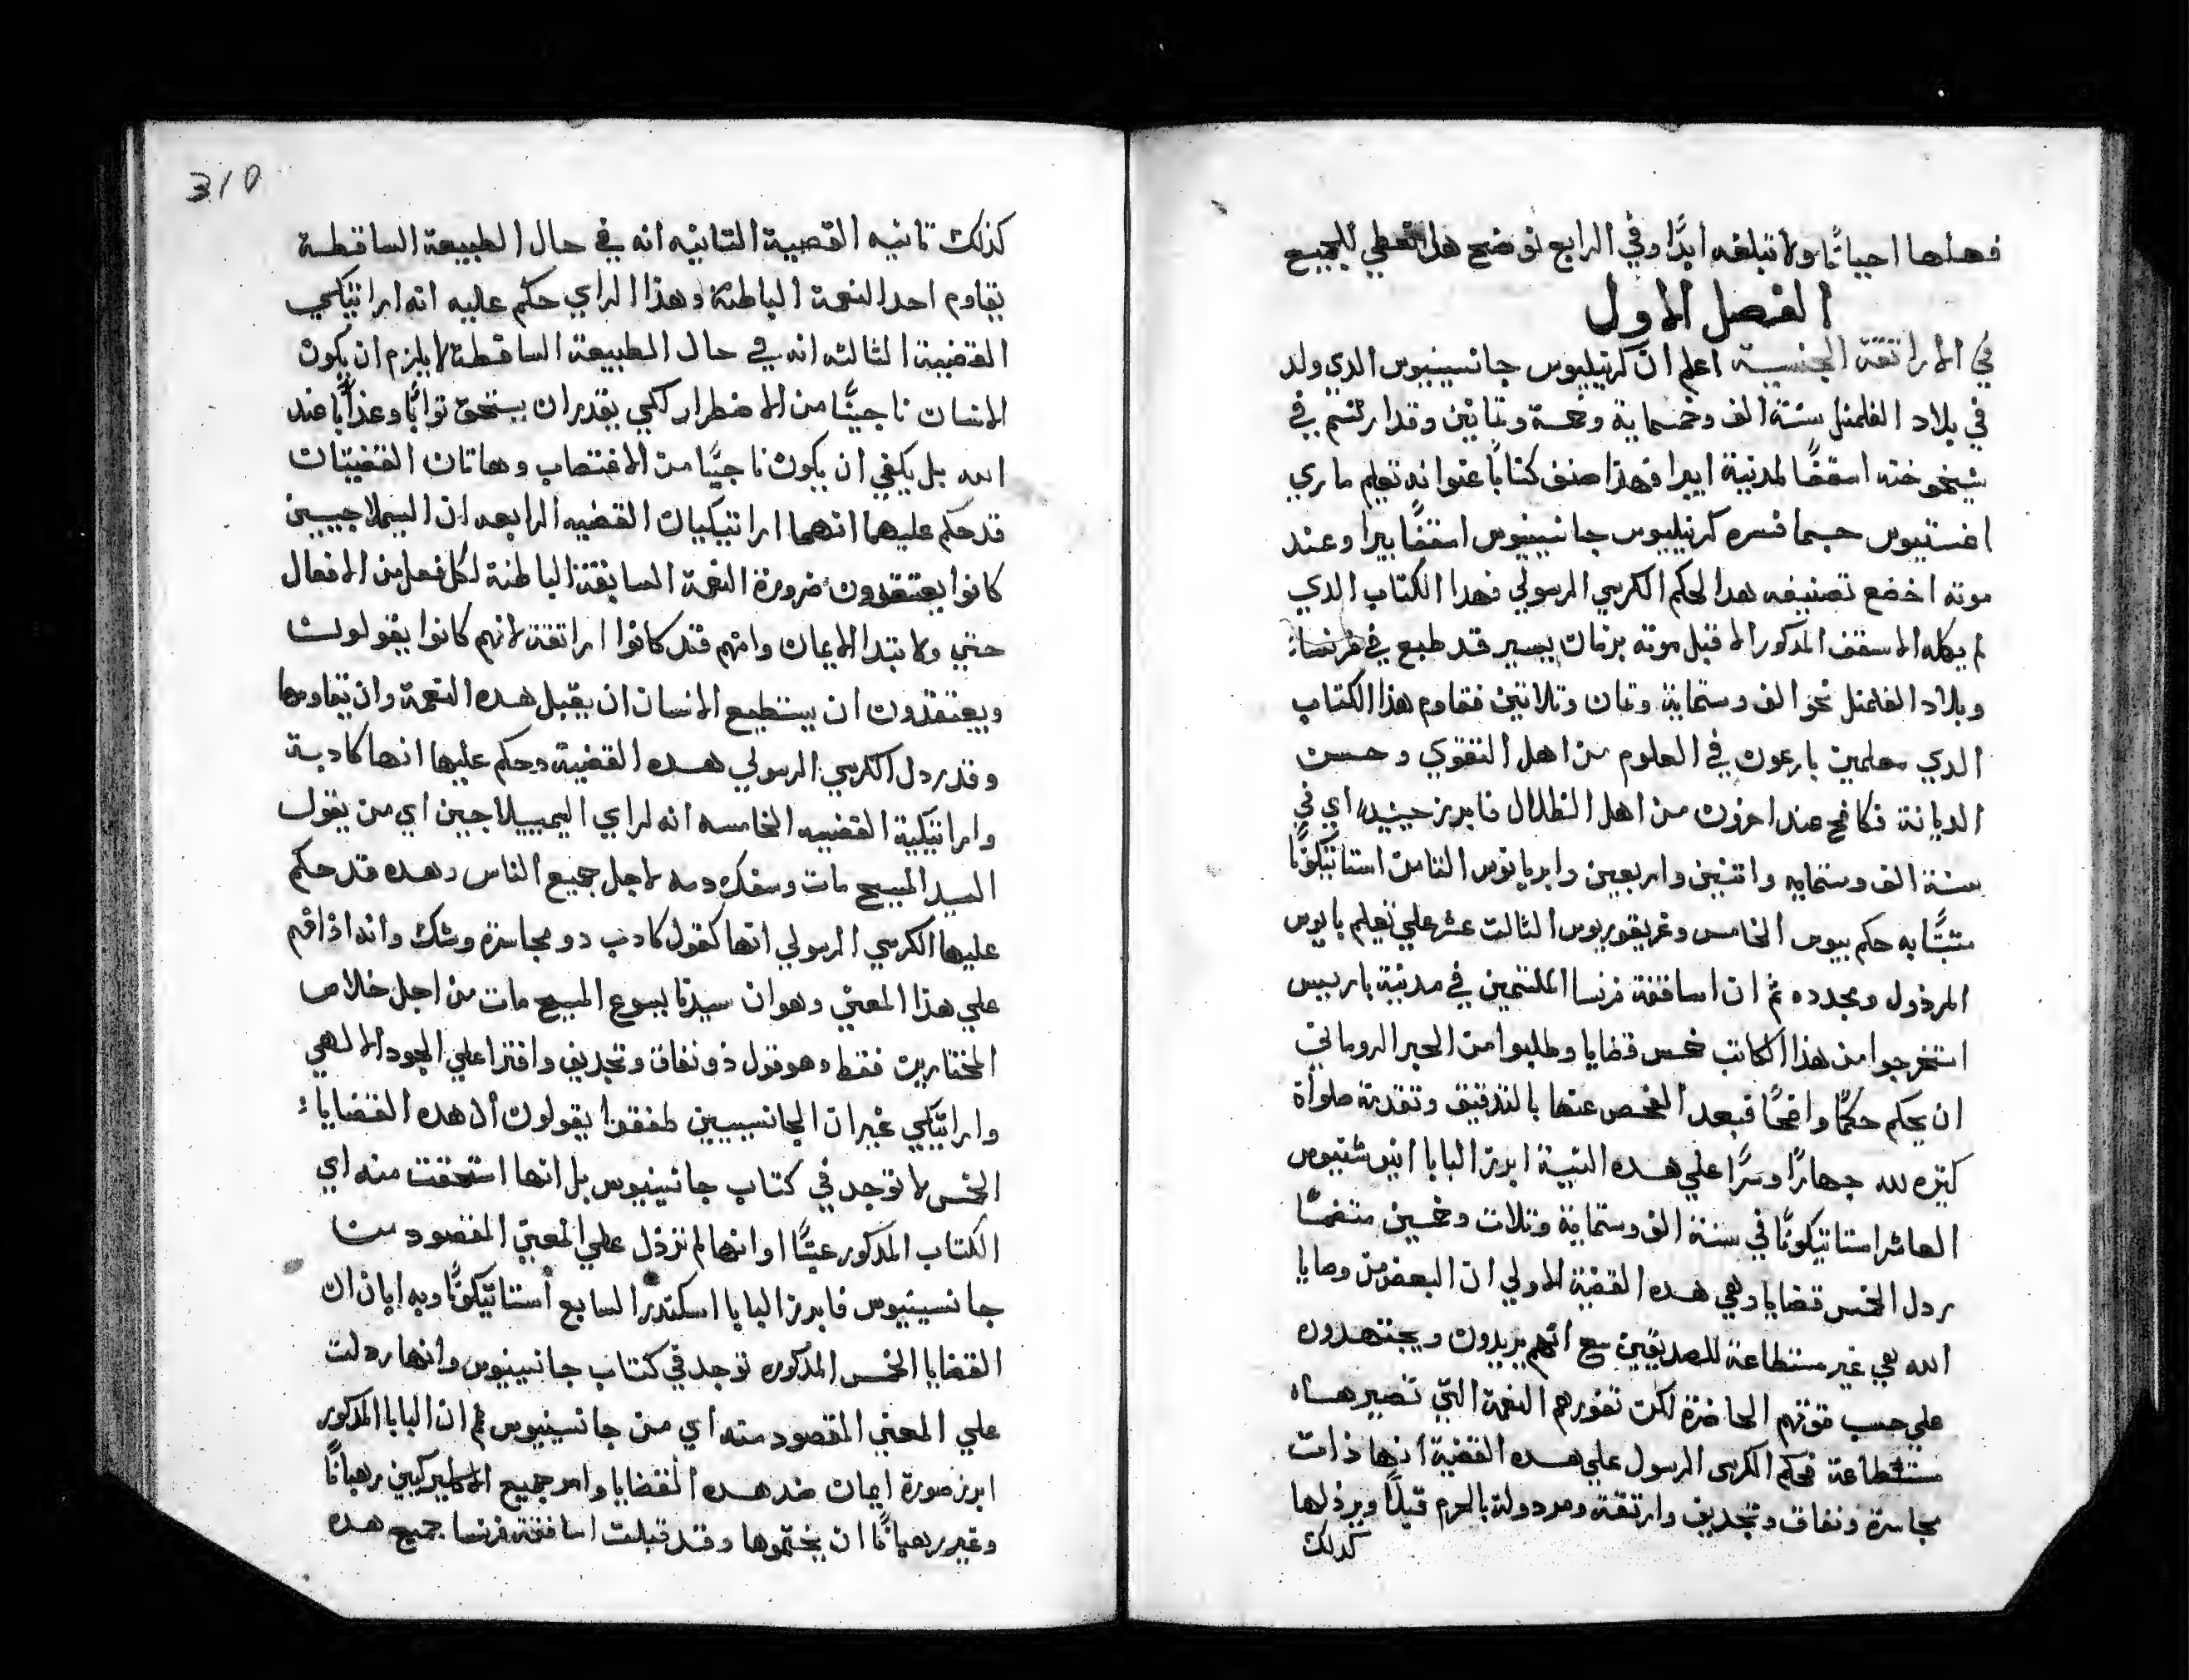 فهلها احيانًا ولا تبلغه ابدًا وفي الرابع نوضح هل تعطي للجميع
الفصل الاول
في الاراتقة الجنسية اعلم ان كرنيليوس جانسينيوس الدي ولد
في بلاد الفلمنل سنة الف وخمسماية وخمسة وتمانين وقد ارتسم في
شيخوخته اسقفًا لمدينة ايبرا فهذا صنف كتابًا عنوانه تعليم ماري
اغستنيوس حسبما فسره كرنيليوس جانسينيوس اسقف ايبرا وعند
موته اخضع تصنيفه هدا لحكم الكرسي الرسولي فهدا الكتاب الدي
لم يكله الاسقف المدكور الا قبل موته بزمان يسير قد طبع في فرنسا
وبلاد الفلمنل نحو الف وستماية وتمان وتلاتين فقاوم هذا الكتاب
الدي معلمين بارعون في العلوم من اهل التقوي وحسن
الديانة فكافح عنه اخرون من اهل الظلال فابرز حينيدٍ اي في
سنة الف وستمايه واتنين واربعين واربانوس التامن استاتيكونًا
متبتًا به حكم بيوس الخامس وغريغوريوس الثالت عشر علي تعليم بايوس
المرذول ومجدده ثم ان اساقفة فرنسا الملتمين في مدينة باريس
استخرجوا من هذا الكاتب خمس قضايا وطلبوا من الحبر الروماني
ان يحكم حكمًا واضحًا فبعد الفحص عنها بالتدقيق وتقدمة صلوأة
كتيره لله جهارًا وسرًا علي هده النية ابرز البابا اينوشنتيوس
العاشر استاتيكونًا في سنة الف وستماية وتلات وخمسين متضمنًا
ردل الخمس قضايا وهي هده القضية الاولي ان البعض من وصايا
الله هي غير مستطاعة للصديقين مع انهم يريدون ويجتهدون
علي حسب قوتهم الحاضرة لكن تعوزهم النعمة التي تصير هاه
مستطاعة فحكم الكرسى الرسول علي هده القضية انها ذات
مجاسرة ونفاق وتجديف وارتقة ومردولة بالحرم قبلًا ويرذلها
كدلك
310
كذلك تانيه القضية التانيه انه في حال الطبيعة الساقطة
يقاوم احد النعمة الباطنة وهذا الراي حكم عليه انه اراتيكي
القضية الثالته انه في حال الطبيعة الساقطة لا يلزم ان يكون
الانسان ناجيًا من الاضطرار لكي يقدر ان يستحق توابًا وعذابًا عند
الله بل يكفي ان يكون ناجيًا من الاغتصاب وهاتان القضيتان
قد حكم عليهما انهما اراتيكيان القضيه الرابعه ان البيملاجيين
كانوا يعتقدون ضرورة النعمة السابقة الباطنة لكل فعل من الافعال
حتي ولابتدا الايمان وانهم قد كانوا اراتقة لانهم كانوا يقولون
ويعتقدون ان يستطيع الانسان ان يقبل هده النعمة وان يقاومها
وقد ردل الكرسي الرسولي هده القضية وحكم عليها انها كادبة
واراتيكية القضيه الخامسه انه لراي اليمييلاجين اي من يقول
السيد المسيح مات وسفك دمه لاجل جميع الناس وهده قد حكم
عليها الكرسي الرسولي انها كقول كادب دو مجاسرة وشك وانه اذا فهم
علي هذا المعني وهو ان سيدنا يسوع المسيح مات من اجل خلاص
المختارين فقط وهو قول ذو نفاق وتجديف وافترا علي الجود الالهي
واراتيكي غير ان الجانسينيين طفقوا يقولون ان هده القضايا
الخمس لا توجد في كتاب جانسينيوس بل انها استحقت منه اي
الكتاب المدكور عبتًا او انها لم تزذل علي المعني المقصود من
جانسينيوس فابرز البابا اسكندر السابع استاتيكونًا وبه ابان ان
القضايا الخمس المدكوره توجد في كتاب جانسينيوس وانها ردلت
علي المعني المقصود منه اي من جانسينيوس ثم ان البابا المدكور
ابرز صورة ايمان ضد هده القضايا وامر جميع الاكليركيين رهبانًا
وغير رهبانًا ان يختموها وقد قبلت اساقفة فرنسا جميع هده